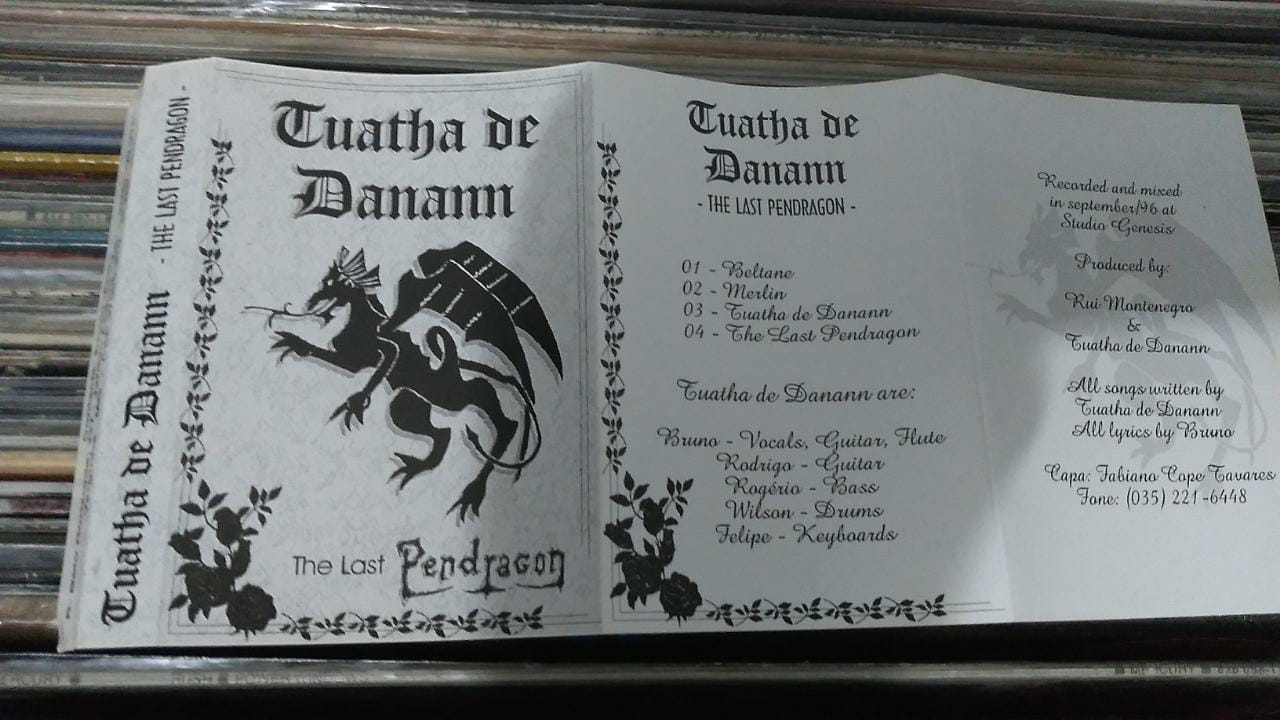 Tuatha de Danann - THE LAST PENDRAGON -
Tuatha de
Danann
The Last Pendragon
Tuatha de
Danann
- THE LAST PENDRAGON -
01 - Beltane
02 - Merlin
03 - Tuatha de Danann
04 - The Last Pendragon
Tuatha de Danann are:
Bruno - Vocals, Guitar, Flute
Rodrigo - Guitar
Rogério - Bass
Wilson - Drums
Felipe - Keyboards
Recorded and mixed
in september/96 at
Studio Genesis
Produced by:
Rui Montenegro
&
Tuatha de Danann
All songs written by
Tuatha de Danann
All lyrics by Bruno
Capa: Fabiano Cope Tavares
Fone: (035) 221-6448